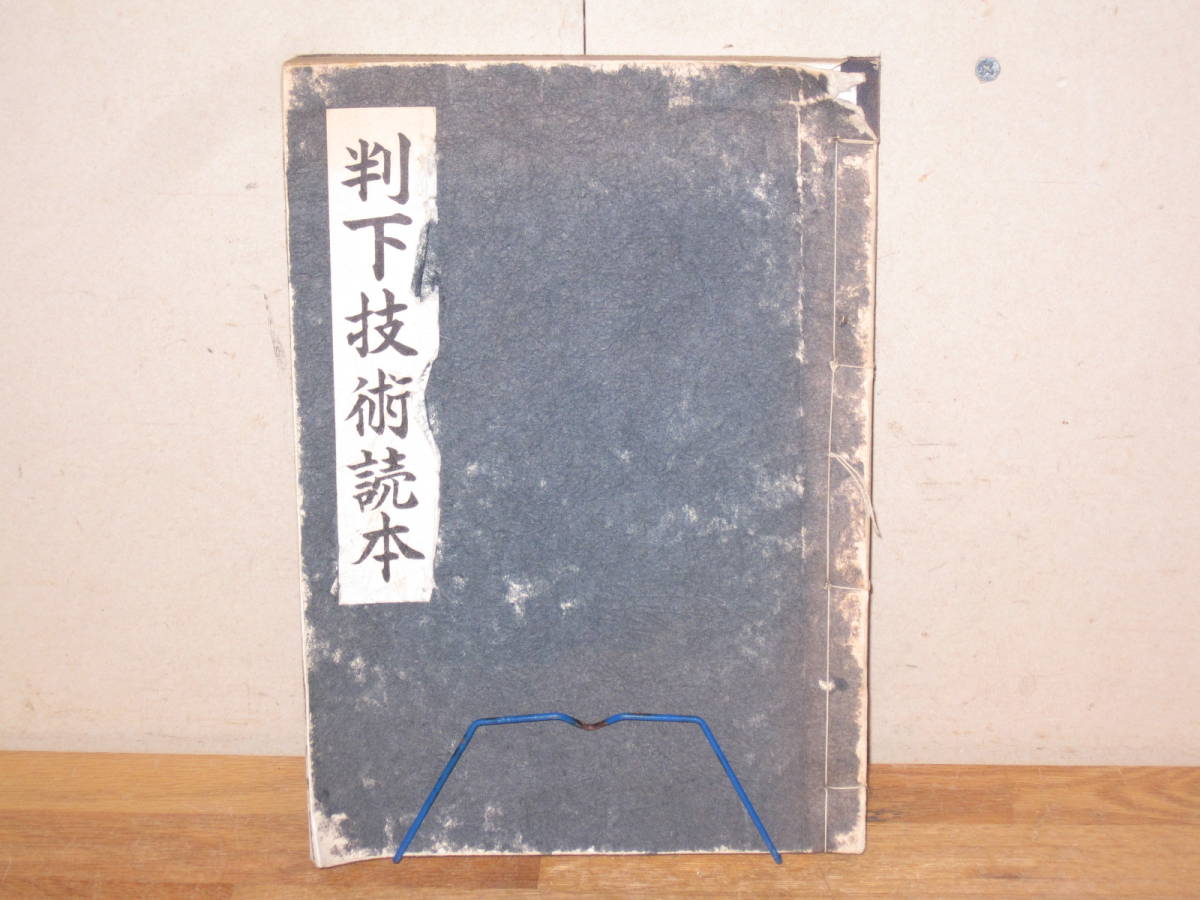 判下技術読本